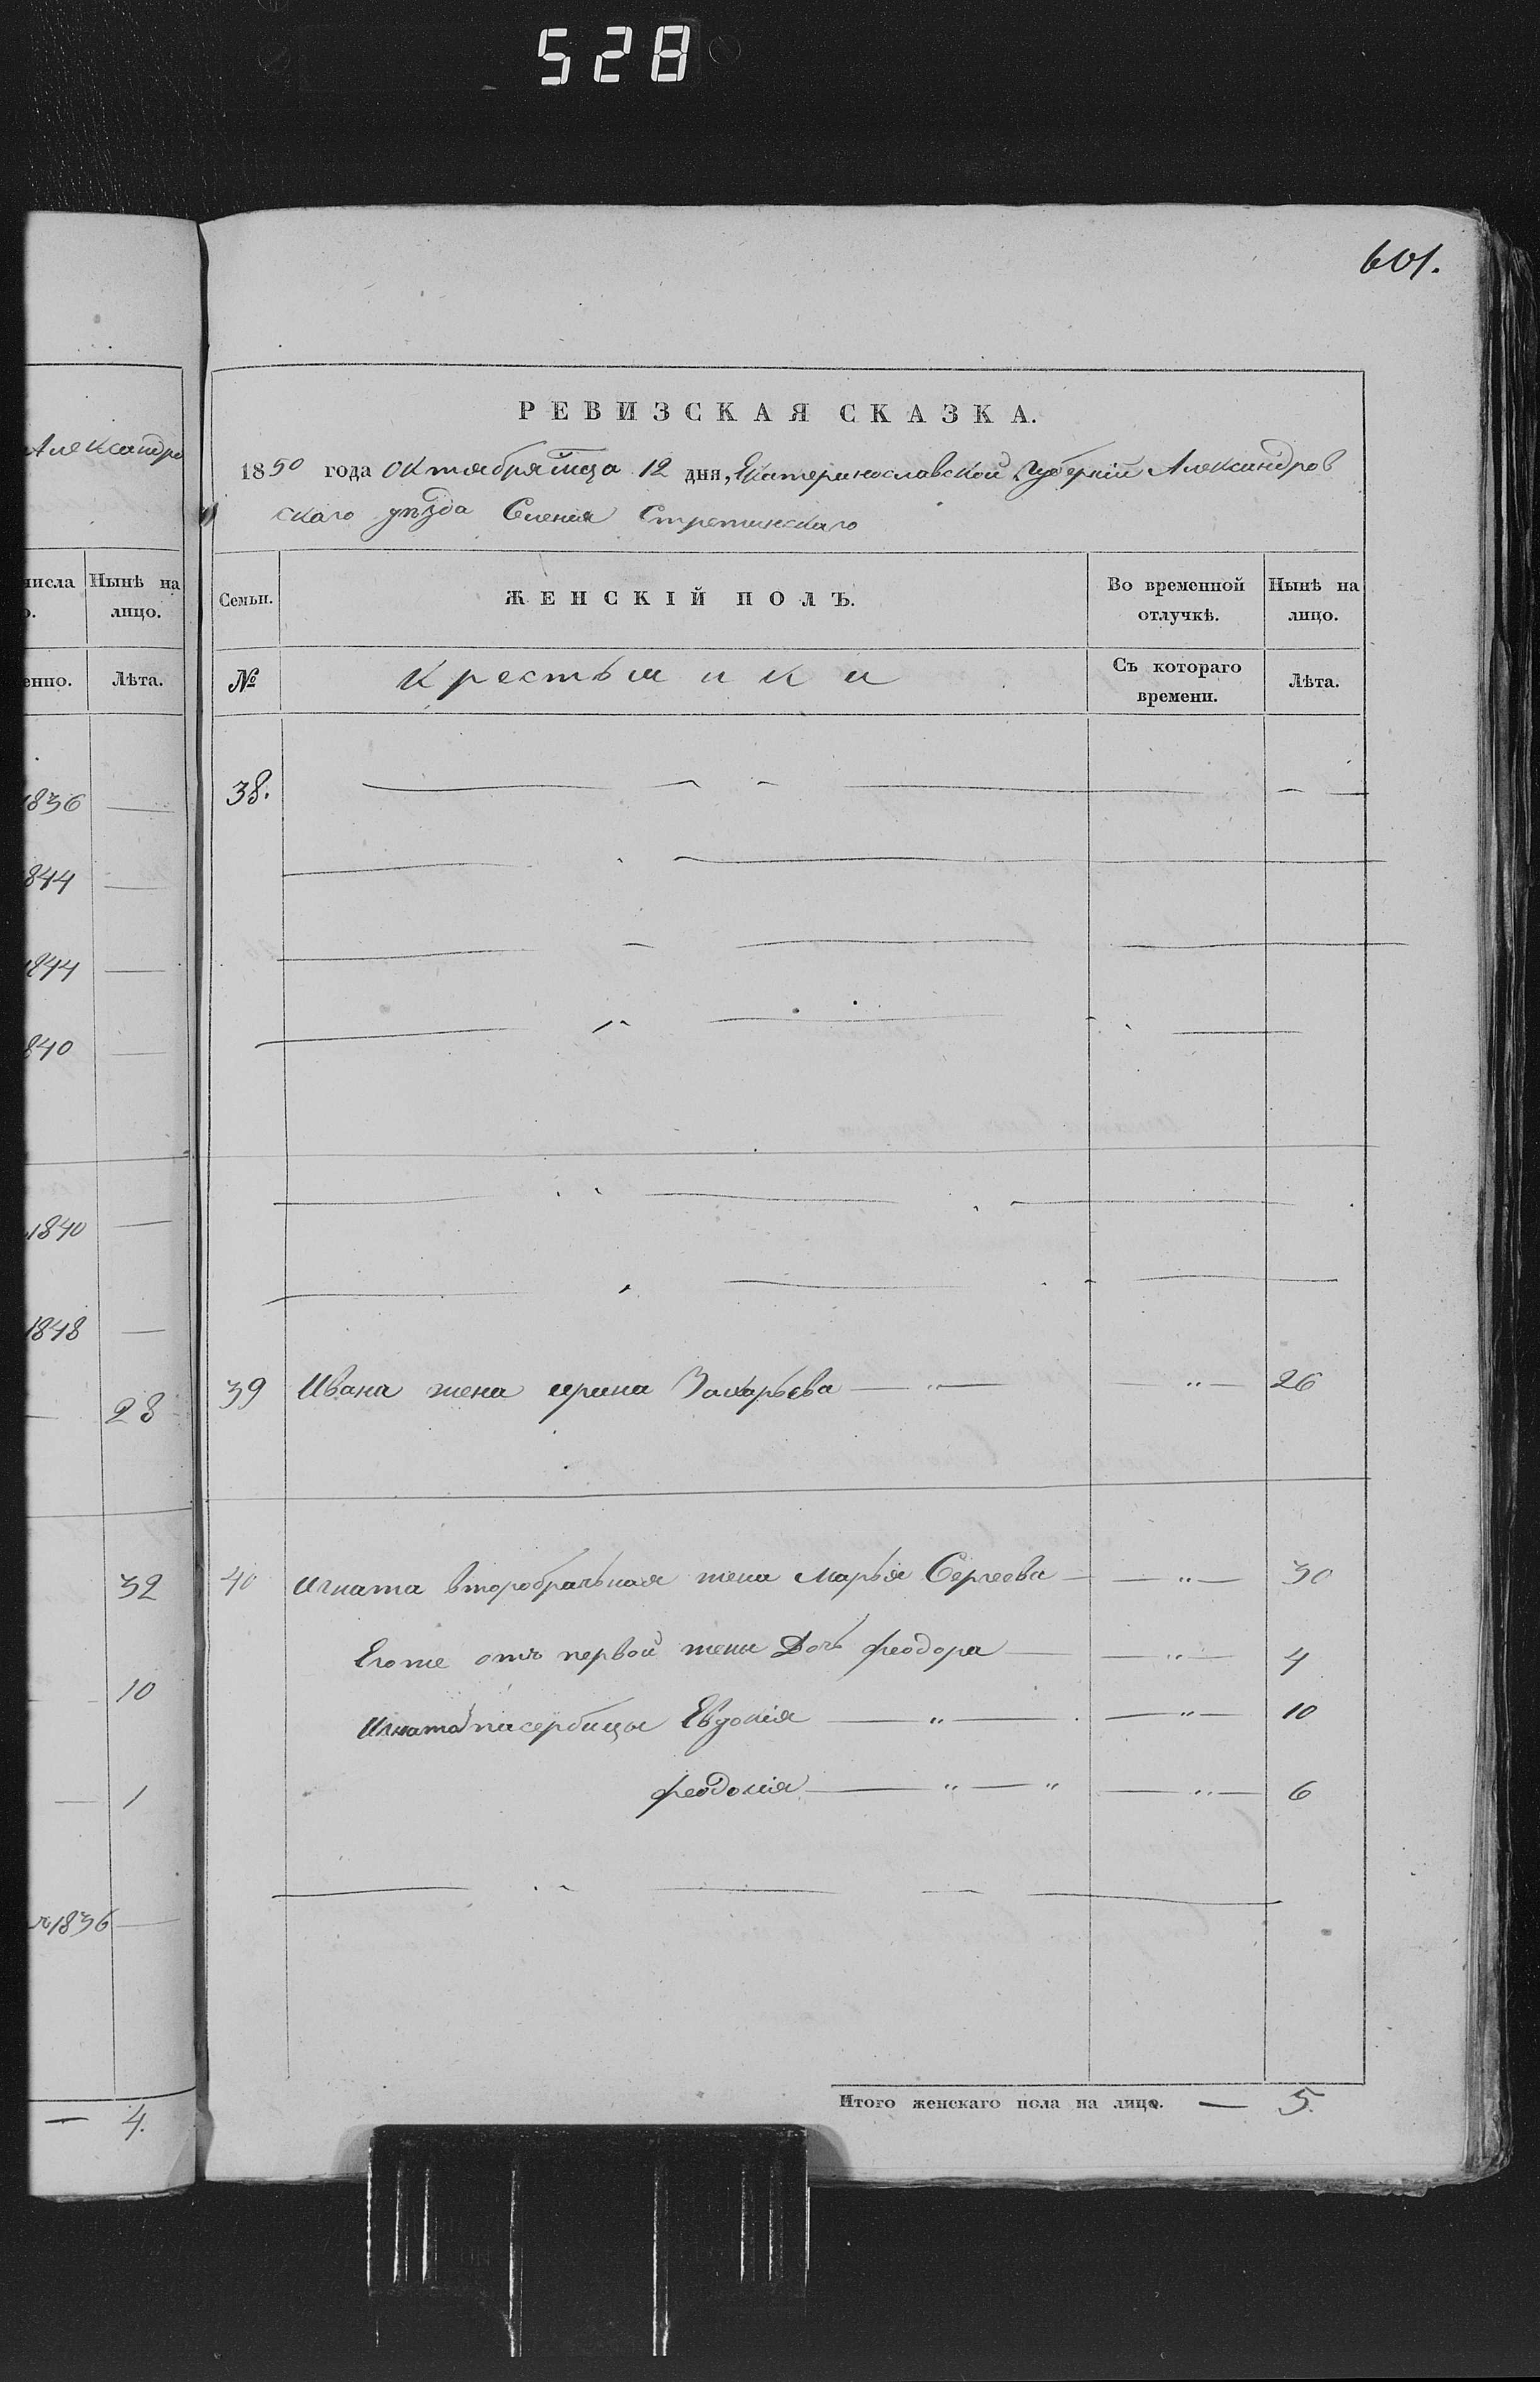 528
601.
Александро
числа Нынѣ на
о. лицо.
енно. Лѣта.
1836 —
844 —
1844 —
840 —
1840 —
1848 —
— 28
32
10
— 1
1836 —
— 4.
РЕВИЗСКАЯ СКАЗКА.
1850 года Октября мца 12 дня, Екатеринославской Губерніи Александров
скаго уѣзда Селенія Стретинскаго
Семьи. ЖЕНСКІЙ ПОЛЪ. Во временной отлучкѣ. Нынѣ на лицо.
№ Крестьянки Съ котораго времени. Лѣта.
38.
39 Ивана жена Ирина Захарьева — „ — — „ — 26
40 Игната второбрачьная жена Марья Сергеева — — „ — 30
Егоже отъ первой жены Дочь Феодора — — „ — 4
Игната пасербицы Евдокія — „ — — „ — 10
Феодосія — „ — „ — „ — 6
Итого женскаго пола на лицо. — 5.